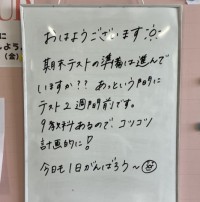 おはようございます
期末テストの準備は進んで
いますか?? あっという間に
テスト2週間前です。
9教科あるので コツコツ
計画的に!
今日も1日がんばろう〜